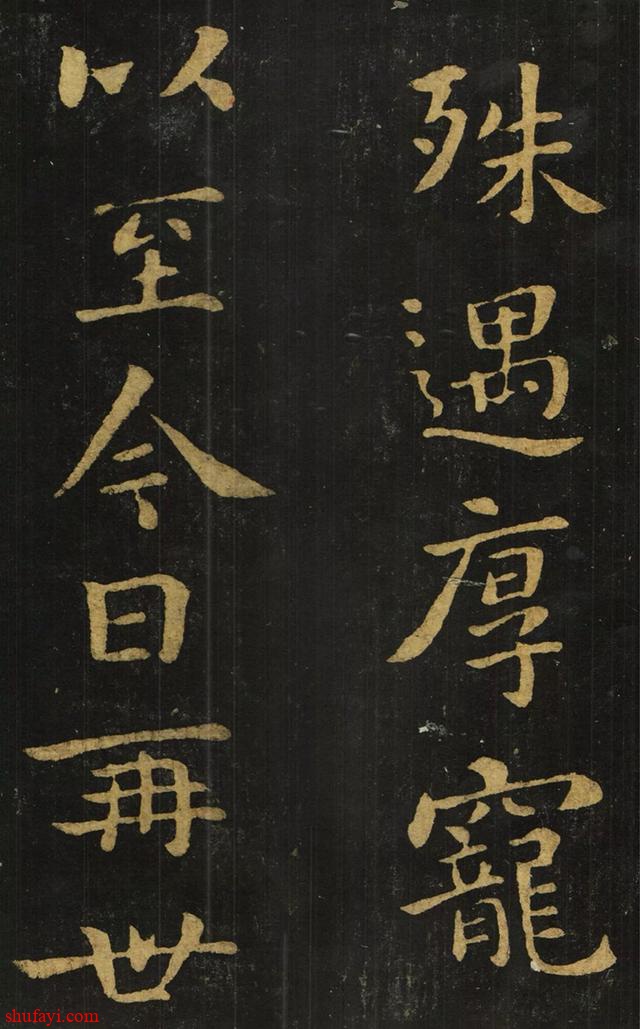 殊遇厚寵
以至今日再世
shufayi.com